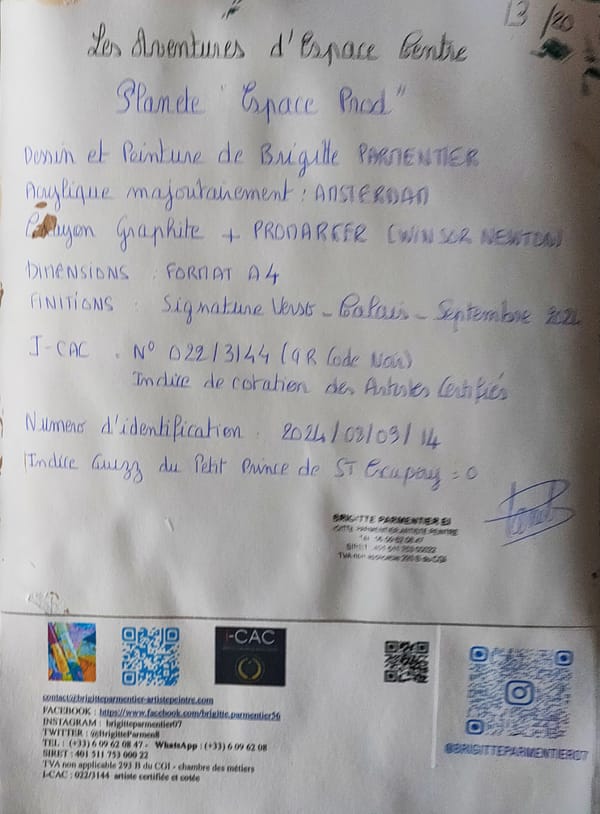 13/20
Les Aventures d'Espace Centre
Planete "Espace Prod"
Dessin et Peinture de Brigitte PARMENTIER
Acrylique majoutairement : AMSTERDAM
Crayon Graphite + PROMARKER (WINSOR NEWTON)
DIMENSIONS : FORMAT A4
FINITIONS : Signature Verso - Calais - Septembre 2024
I-CAC . N° 022/3144 (QR Code Noir)
Indice de cotation des Artistes Certifiés
Numero d'identification : 2024/08/09/14
Indice Quizz du Petit Prince de ST Exupery = 0
BRIGITTE PARMENTIER EI
PARMENTIER ARTISTE PEINTRE
Tel 06 09 62 08 47
SIRET : 401 511 753 00022
TVA non applicable 293 B du CGI
I-CAC
contact@brigitteparmentier-artistepeintre.com
FACEBOOK : https://www.facebook.com/brigitte.parmentier56
INSTAGRAM : brigitteparmentier07
TWITTER : @BrigitteParmen8
TEL : (+33) 6 09 62 08 47 - WhatsApp : (+33) 6 09 62 08
SIRET : 401 511 753 000 22
TVA non applicable 293 B du CGI - chambre des métiers
I-CAC : 022/3144 artiste certifiée et cotée
@BRIGITTEPARMENTIER07